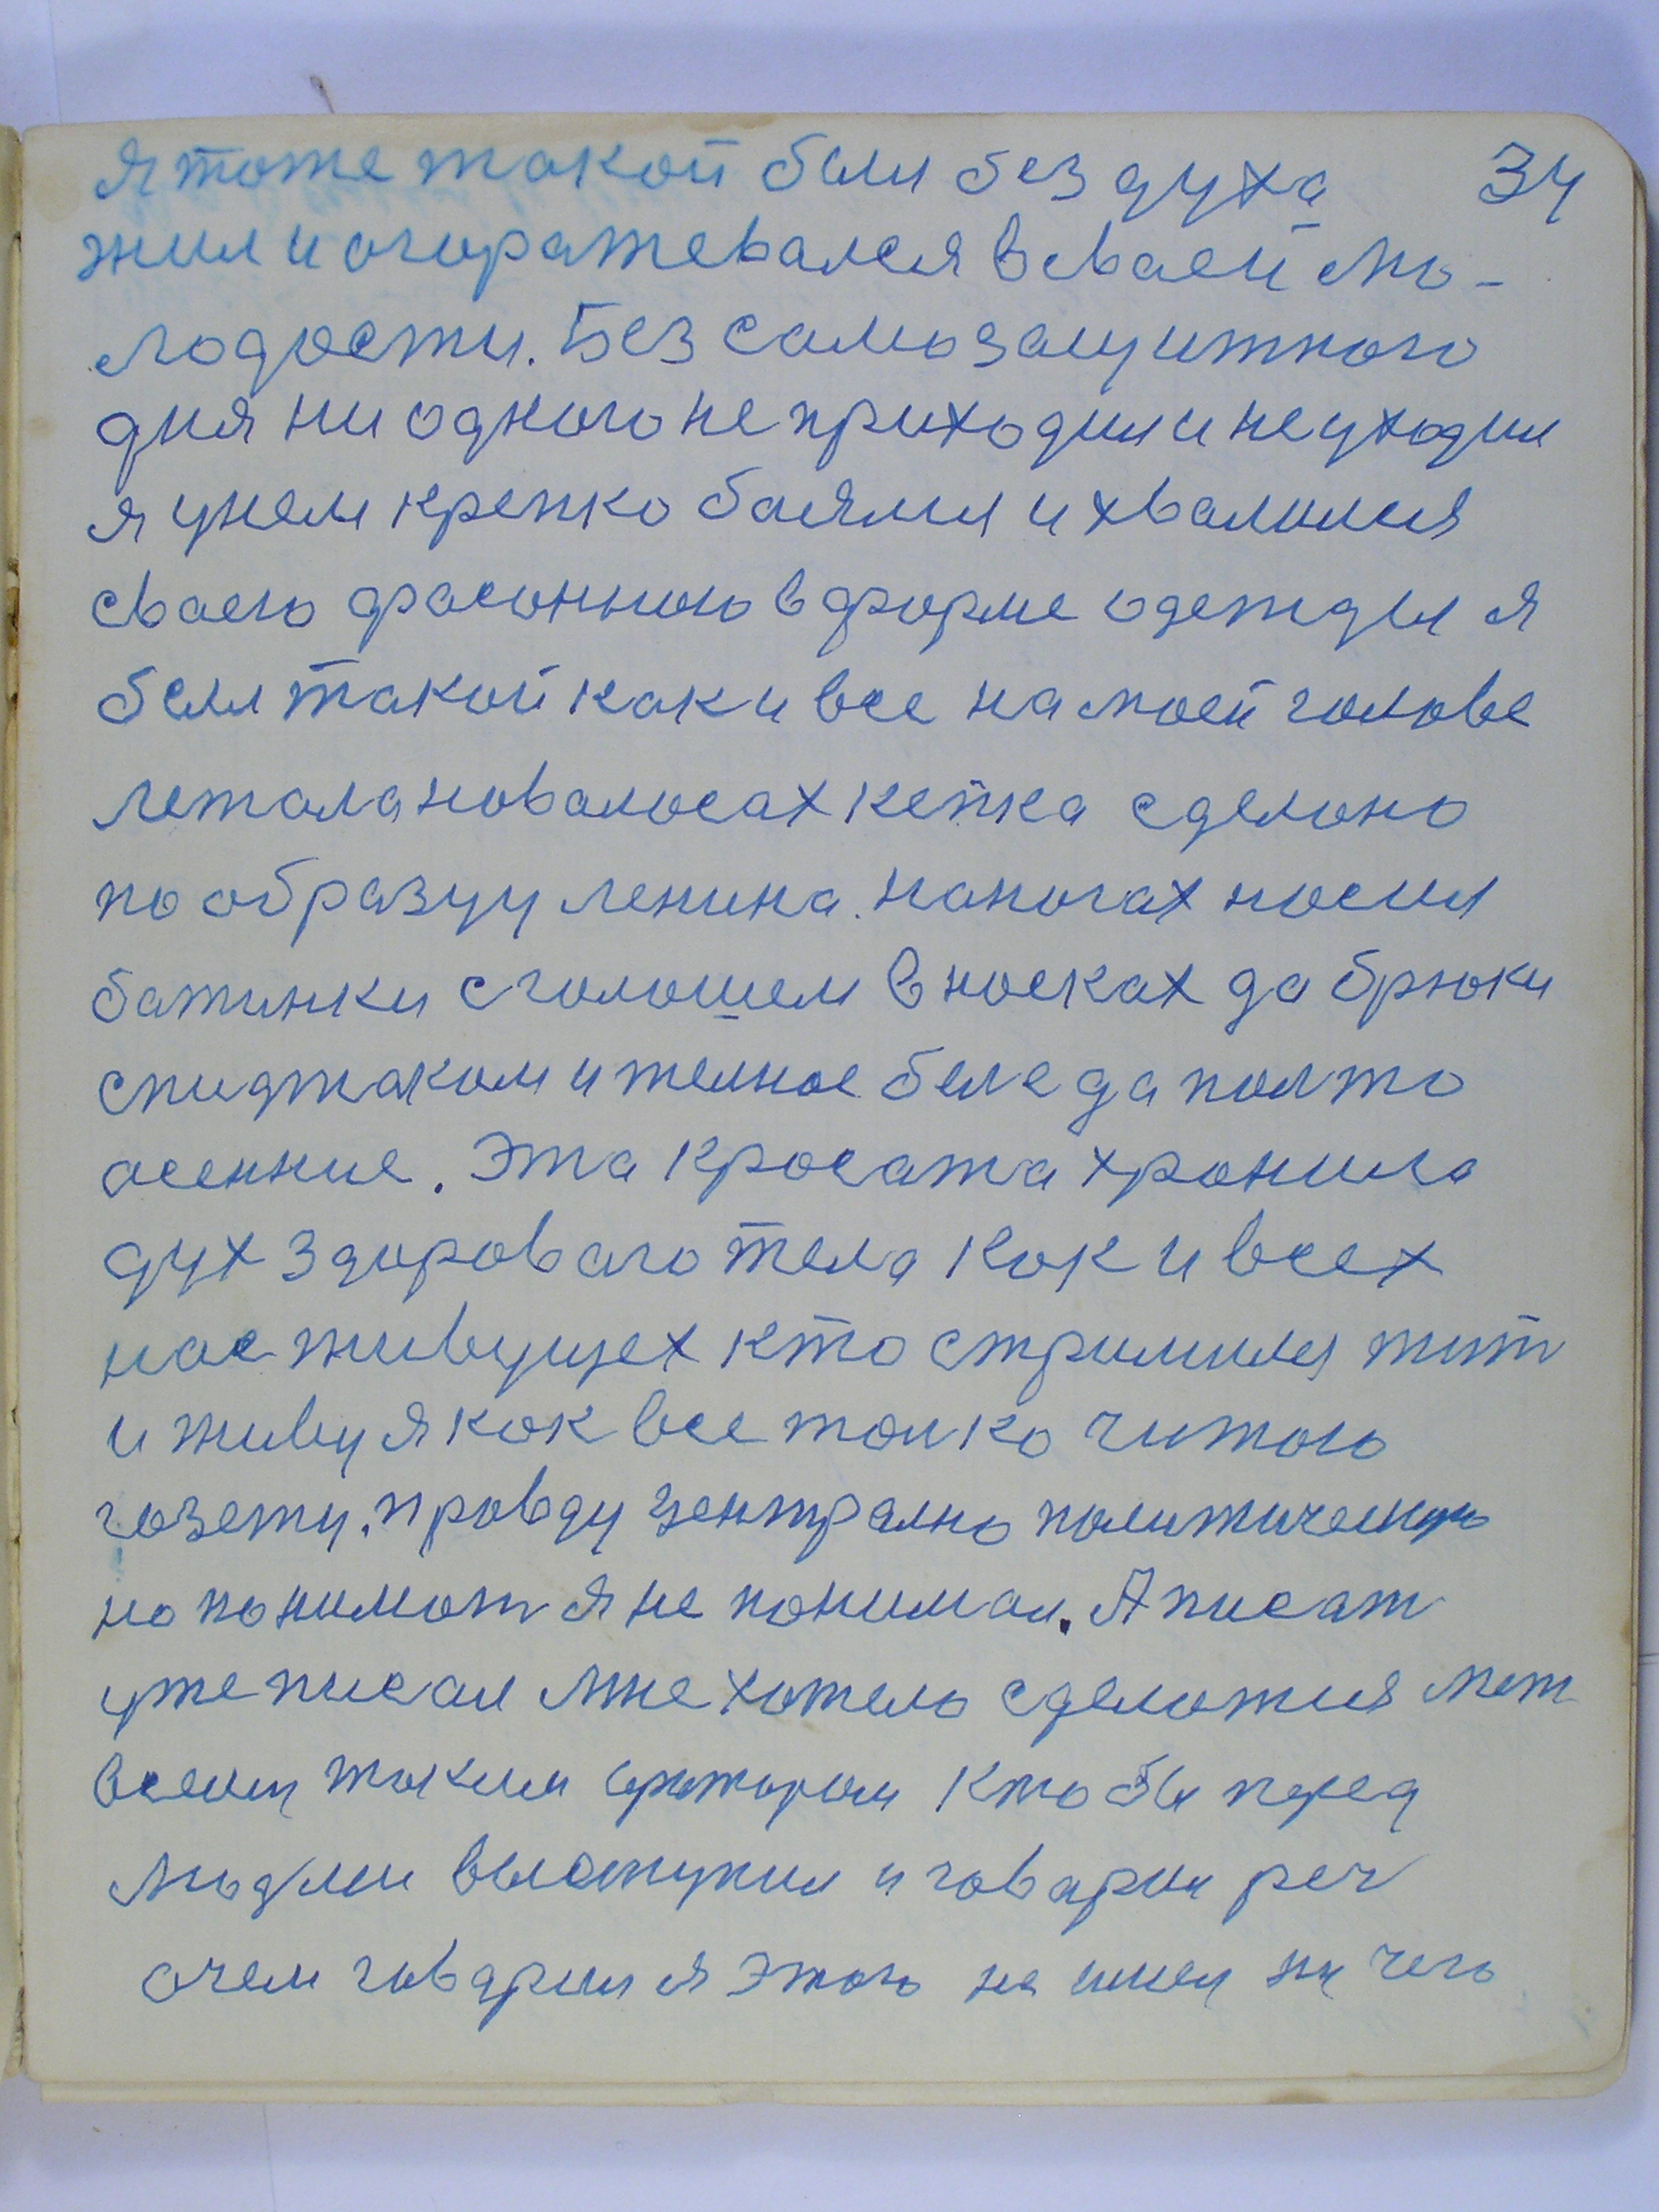 я тоже такой был без духа 34
жил и огоражевался в сваей мо-
лодости. Без самозащитного
дня ни одного не приходил и не уходил
я умел крепко боялся и хвалился
сваего фасонного в форме одежды я
был такой как и все на моей голове
лежала новолосах кепка сделоно
по образуу ленина. наногах носил
батинки с голошем в носках да брюки
спиджаком и телное беле да полто
осенние. Эта кросата хронила
дух здорового тела как и всех
нас живущех кто стримился жит
и живу я как все толко читаю
гозету. провду централно политическую
но понимат я не понимал. А писат
уже писал мне хотело сделатия
всеми таким оратором кто бы перед
людми выступил и говарил реч
очем говарил я этого не имел ни чего